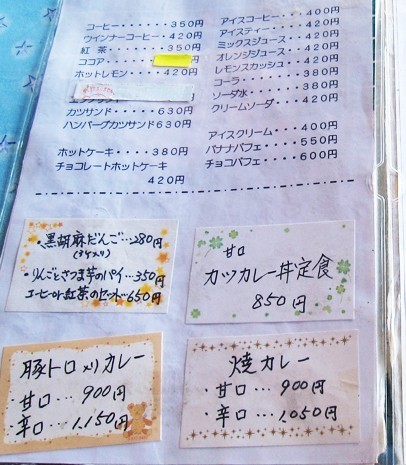 コーヒー・・・・３５０円
ウインナーコーヒー・４２０円
紅 茶・・・・・３５０円
ココア
円
ホットレモン・・・４２０円
カツサンド・・・・６３０円
ハンバーグカツサンド６３０円
ホットケーキ・・・３８０円
チョコレートホットケーキ
４２０円
アイスコーヒー・・４００円
アイスティー・・・４２０円
ミックスジュース・・４２０円
オレンジジュース・・４２０円
レモンスカッシュ・・４２０円
コーラ・・・・・３８０円
ソーダ水・・・・３８０円
クリームソーダ・・４２０円
アイスクリーム・・・４００円
バナナパフェ・・・５５０円
チョコパフェ・・・６００円
・黒胡麻だんご…280円
(3ケ入り)
・りんごとさつま芋のパイ…350円
コーヒーor紅茶のセット…650円
甘口
カツカレー丼定食
850円
豚トロ入りカレー
・甘口…900円
・辛口…1,150円
焼カレー
・甘口…900円
・辛口…1,050円